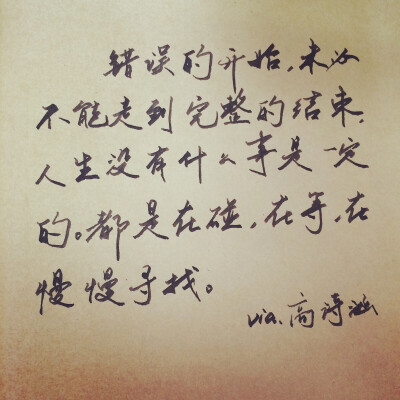 错误的开始,未必
不能走到完整的结束.
人生没有什么事是一定
的。都是在碰,在等,在
慢慢寻找。
via.高诗涵